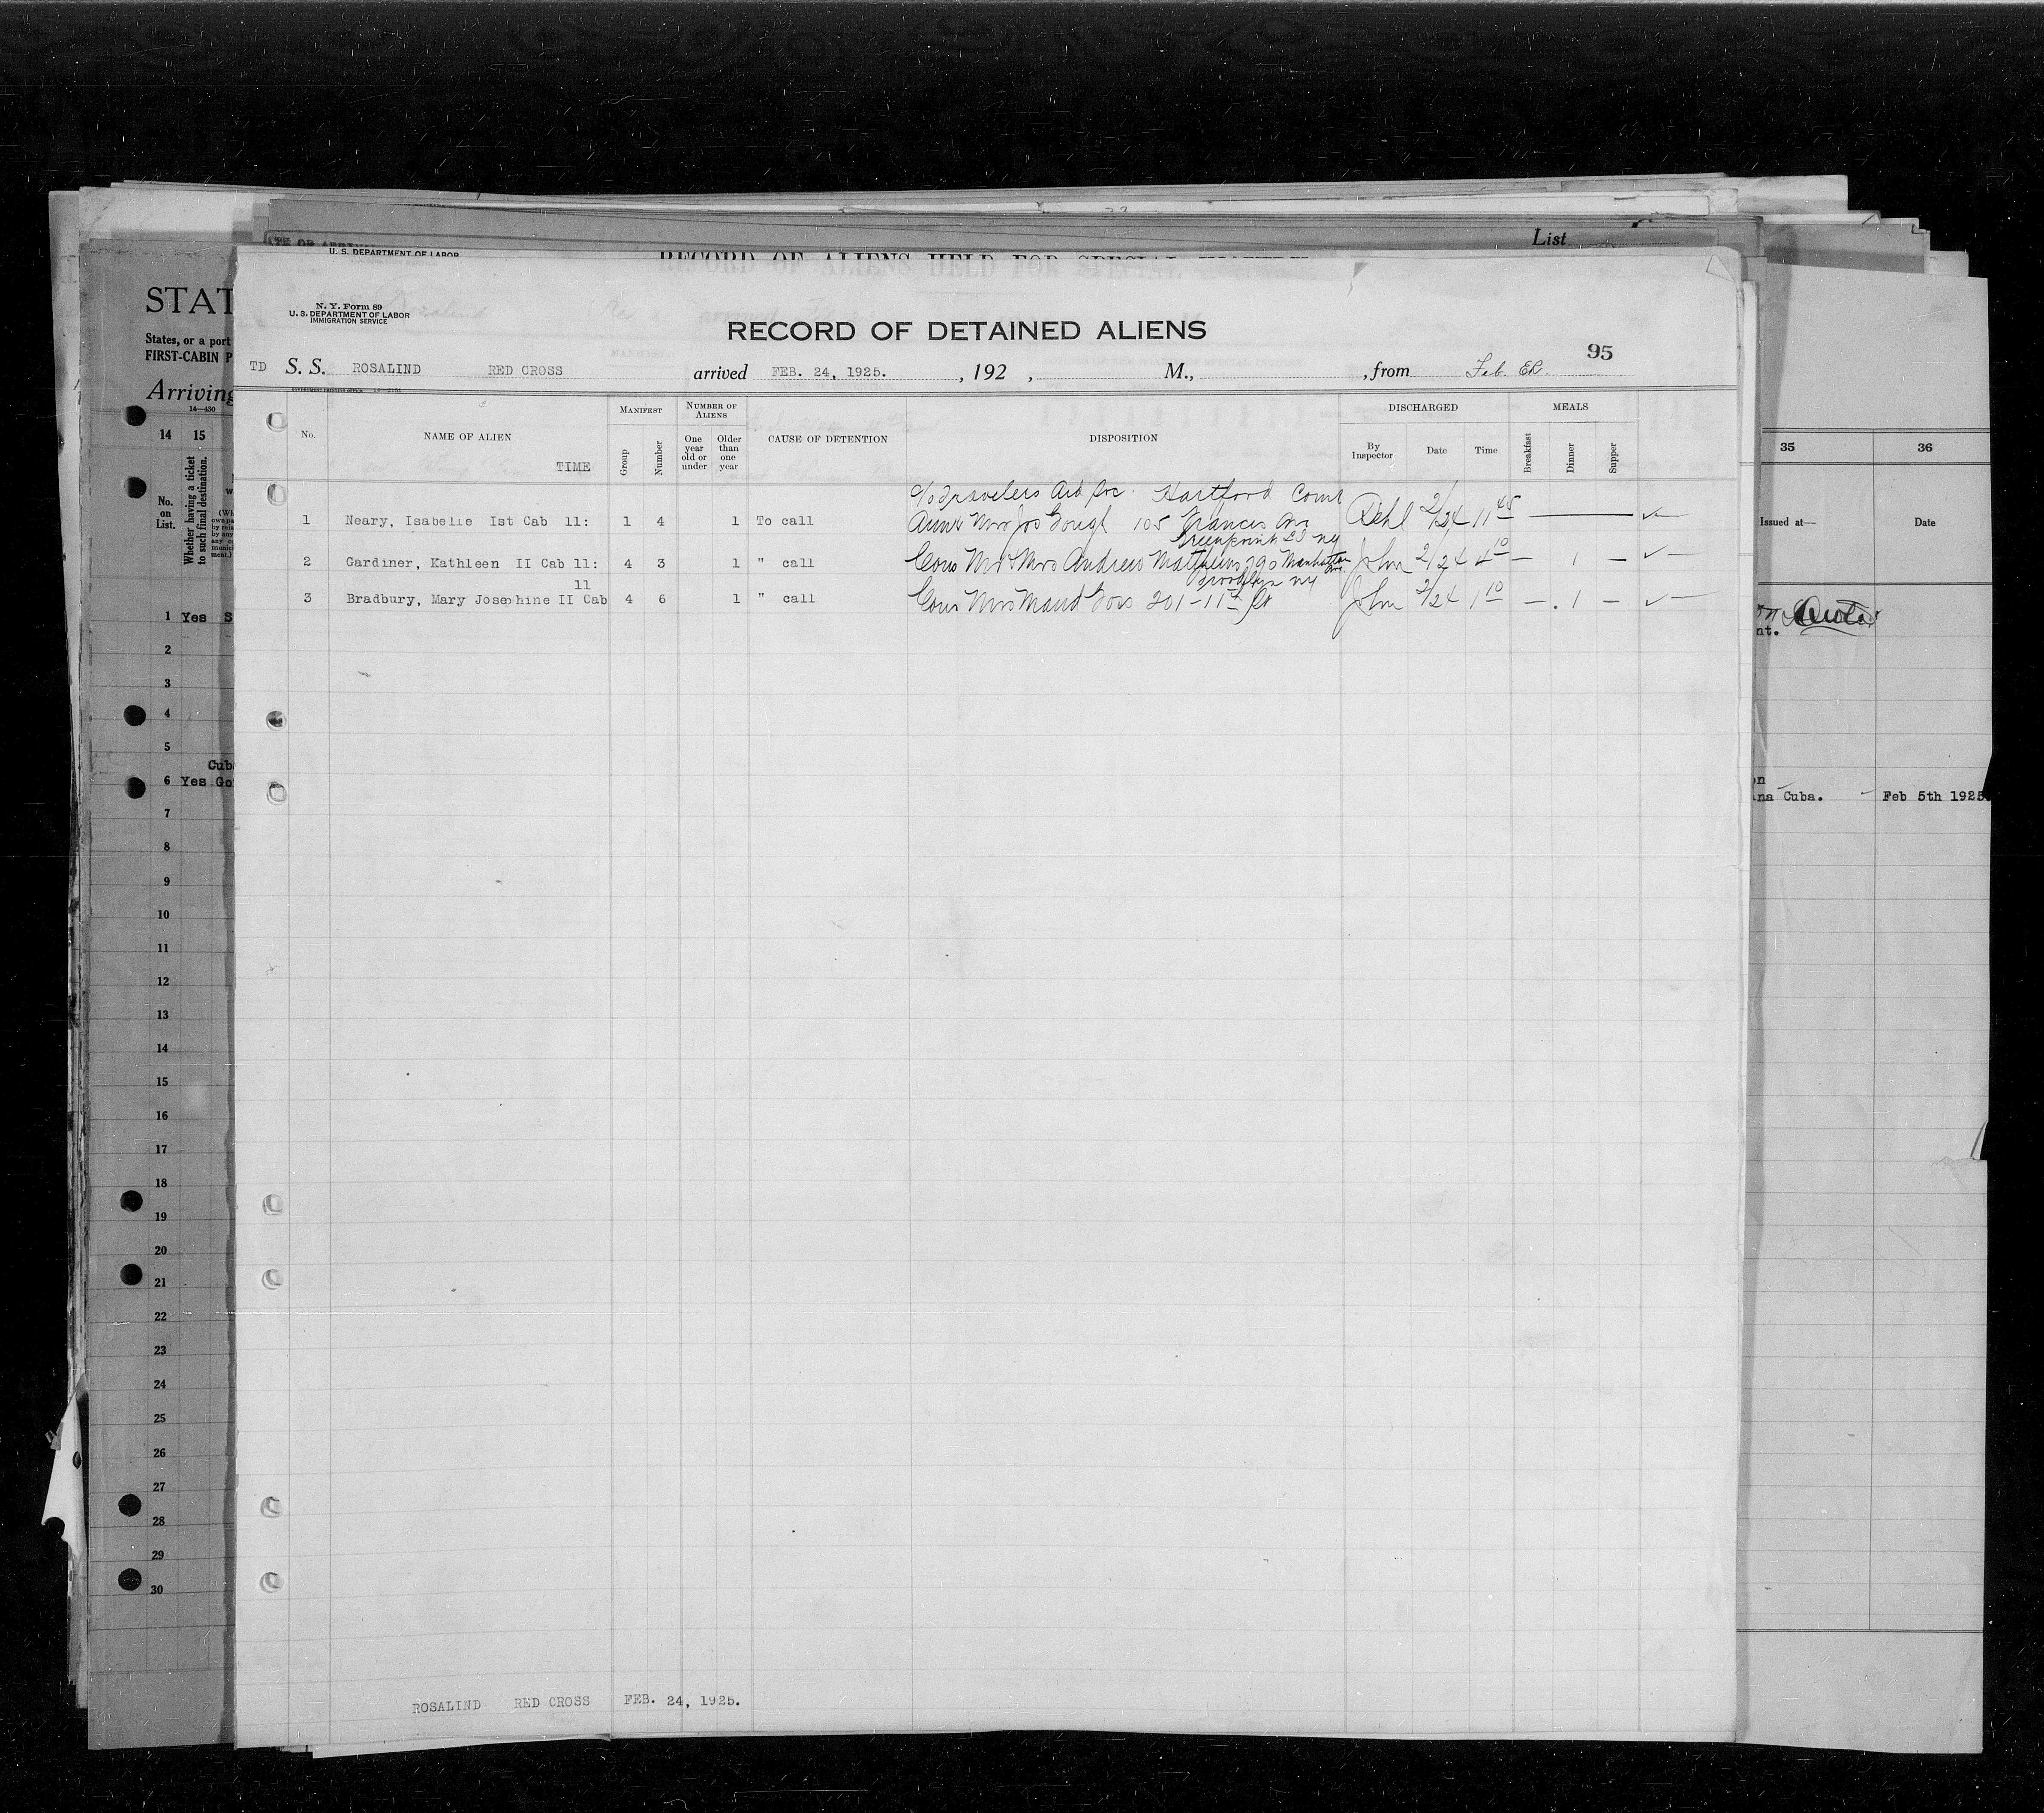 List
U. S. DEPARTMENT OF LABOR
RECORD OF ALIENS HELD FOR SPECIAL INQUIRY
STAT
States, or a port
FIRST-CABIN P
Arriving
14—430
14 15
No. on List.
Whether having a ticket to such final destination.
1 Yes S
2
3
4
5
Cuba
6 Yes Go
7
8
9
10
11
12
13
14
15
16
17
18
19
20
21
22
23
24
25
26
27
28
29
30
N. Y. Form 89
U. S. DEPARTMENT OF LABOR
IMMIGRATION SERVICE
RECORD OF DETAINED ALIENS
95
TD S. S. ROSALIND RED CROSS arrived FEB. 24, 1925. , 192 , M., , from
MANIFEST NUMBER OF ALIENS DISCHARGED MEALS
No. NAME OF ALIEN TIME Group Number One year old or under Older than one year CAUSE OF DETENTION DISPOSITION By Inspector Date Time Breakfast Dinner Supper
c/o Travelers Aid Soc. Hartford Conn
1 Neary, Isabelle Ist Cab 11: 1 4 1 To call Aunt Mrs Jos Gough 105 Frances Ave Dehl 2/24 11 45
Greenpoint LI NY
2 Gardiner, Kathleen II Cab 11: 4 3 1 " call Cous Mr & Mrs Andrew Matthews 790 Manhattan Ave. John 2/24 4 10 — 1 —
11 Brooklyn NY
3 Bradbury, Mary Josephine II Cab 4 6 1 " call Cous Mrs Maud Goss 201-11th St John 2/24 1 10 — 1 —
ROSALIND RED CROSS FEB. 24, 1925.
35 36
Issued at— Date
nt.
on
ana Cuba. Feb 5th 1925